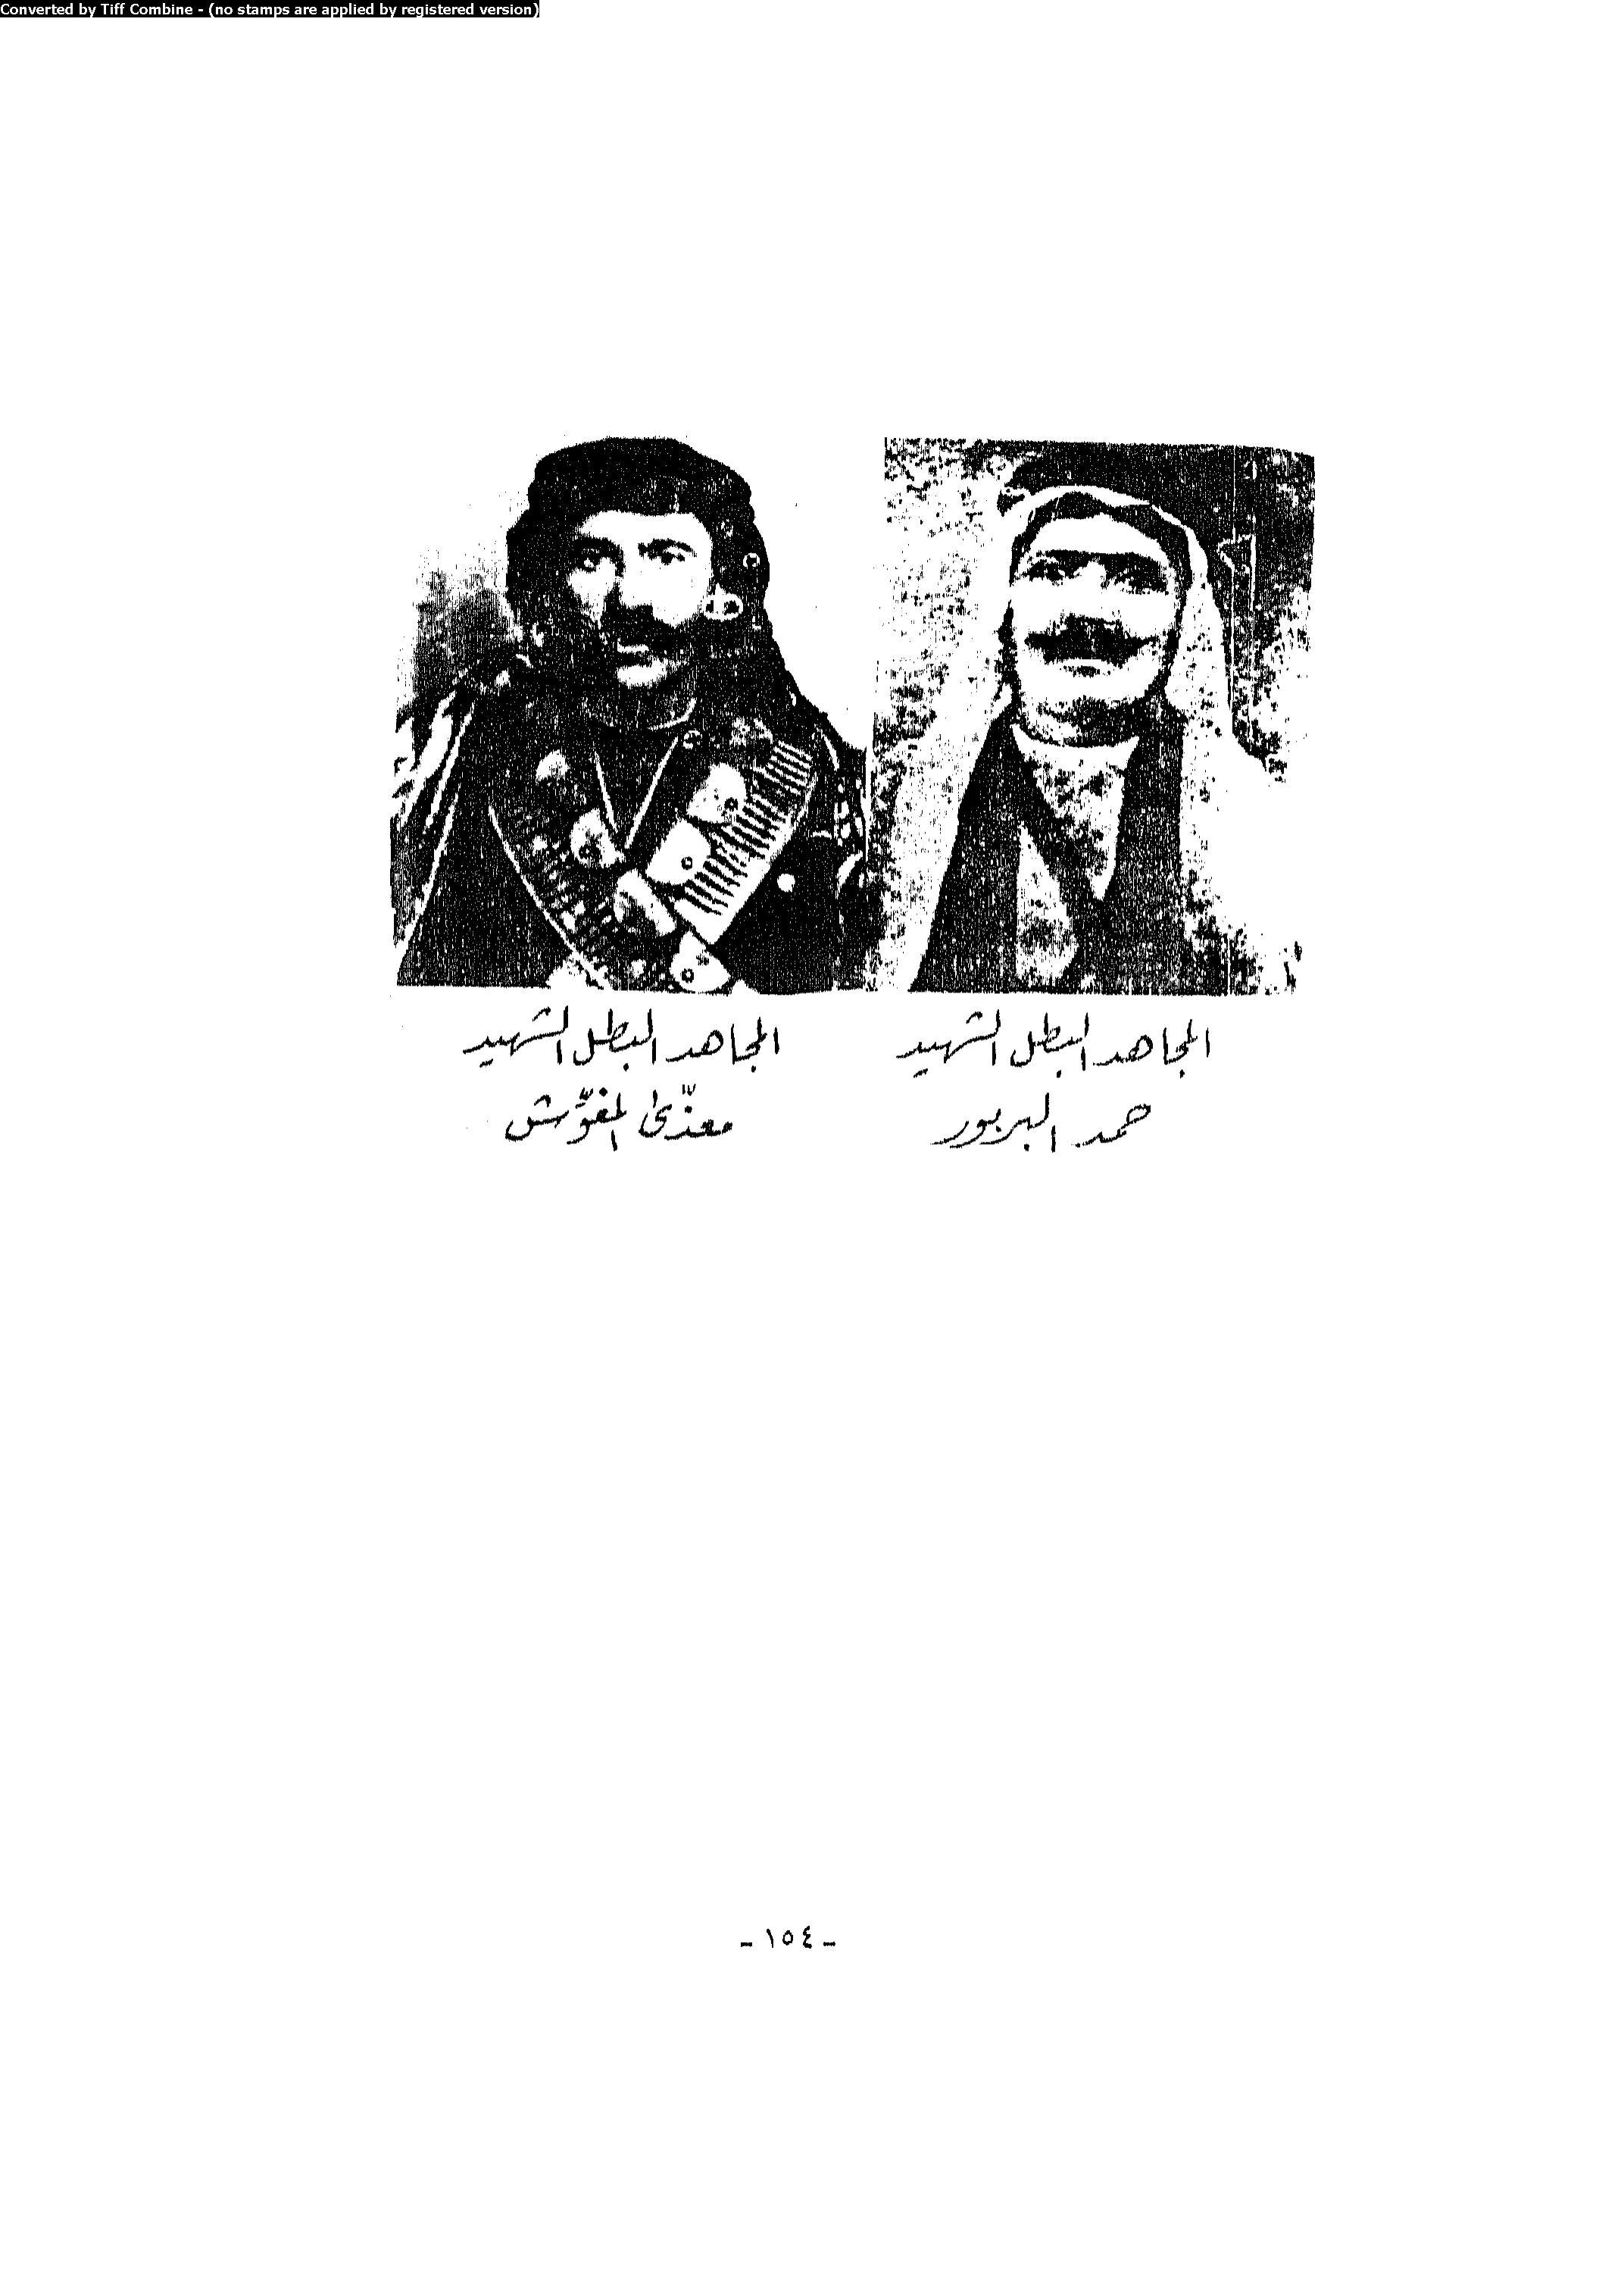 Converted by Tiff Combine - (no stamps are applied by registered version)
المجاهد البطل الشهيد
حمد البربور
المجاهد البطل الشهيد
معذّى المغوّش
- ١٥٤ -